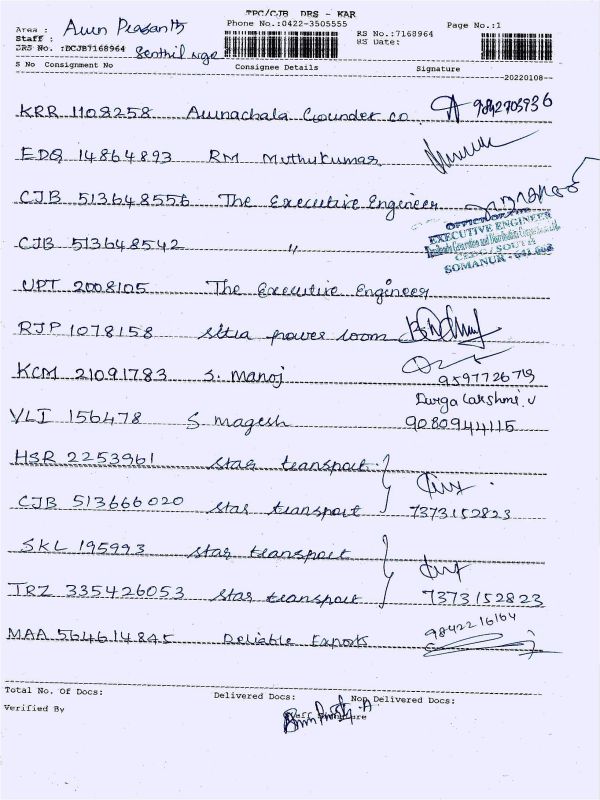 TPC/CJB DRS - KAR
Phone No.:0422-3505555
Page No.:1
Area : Arun Prasanth
Staff :
RS No.:7168964
DRS No. :DCJB7168964 Senthil nga
RS Date:
S No Consignment No Consignee Details Signature
20220108
KRR 1108258 Arunachala Gounder co 9842703936
EDQ 14864893 RM Muthukumar
CJB 513648556 The Executive Engineer
OFFICE OF THE
EXECUTIVE ENGINEER
CJB 513648542 "
CEDC / SOUTH
SOMANUR - 641 668
UPT 2008105 The Executive Engineer
RJP 1078158 sitia power loom
KCM 21091783 S. Manoj
9597726719
Durga Lakshmi. V
VLI 156478 S magesh 9080944115
HSR 2253961 star transport
CJB 513666020 star transport 7373152823
SKL 195993 star transport
TRZ 335426053 star transport 7373152823
MAA 564614845 Reliable Exports 9842216164
Total No. Of Docs: Delivered Docs: Non Delivered Docs:
Verified By Staff Signature